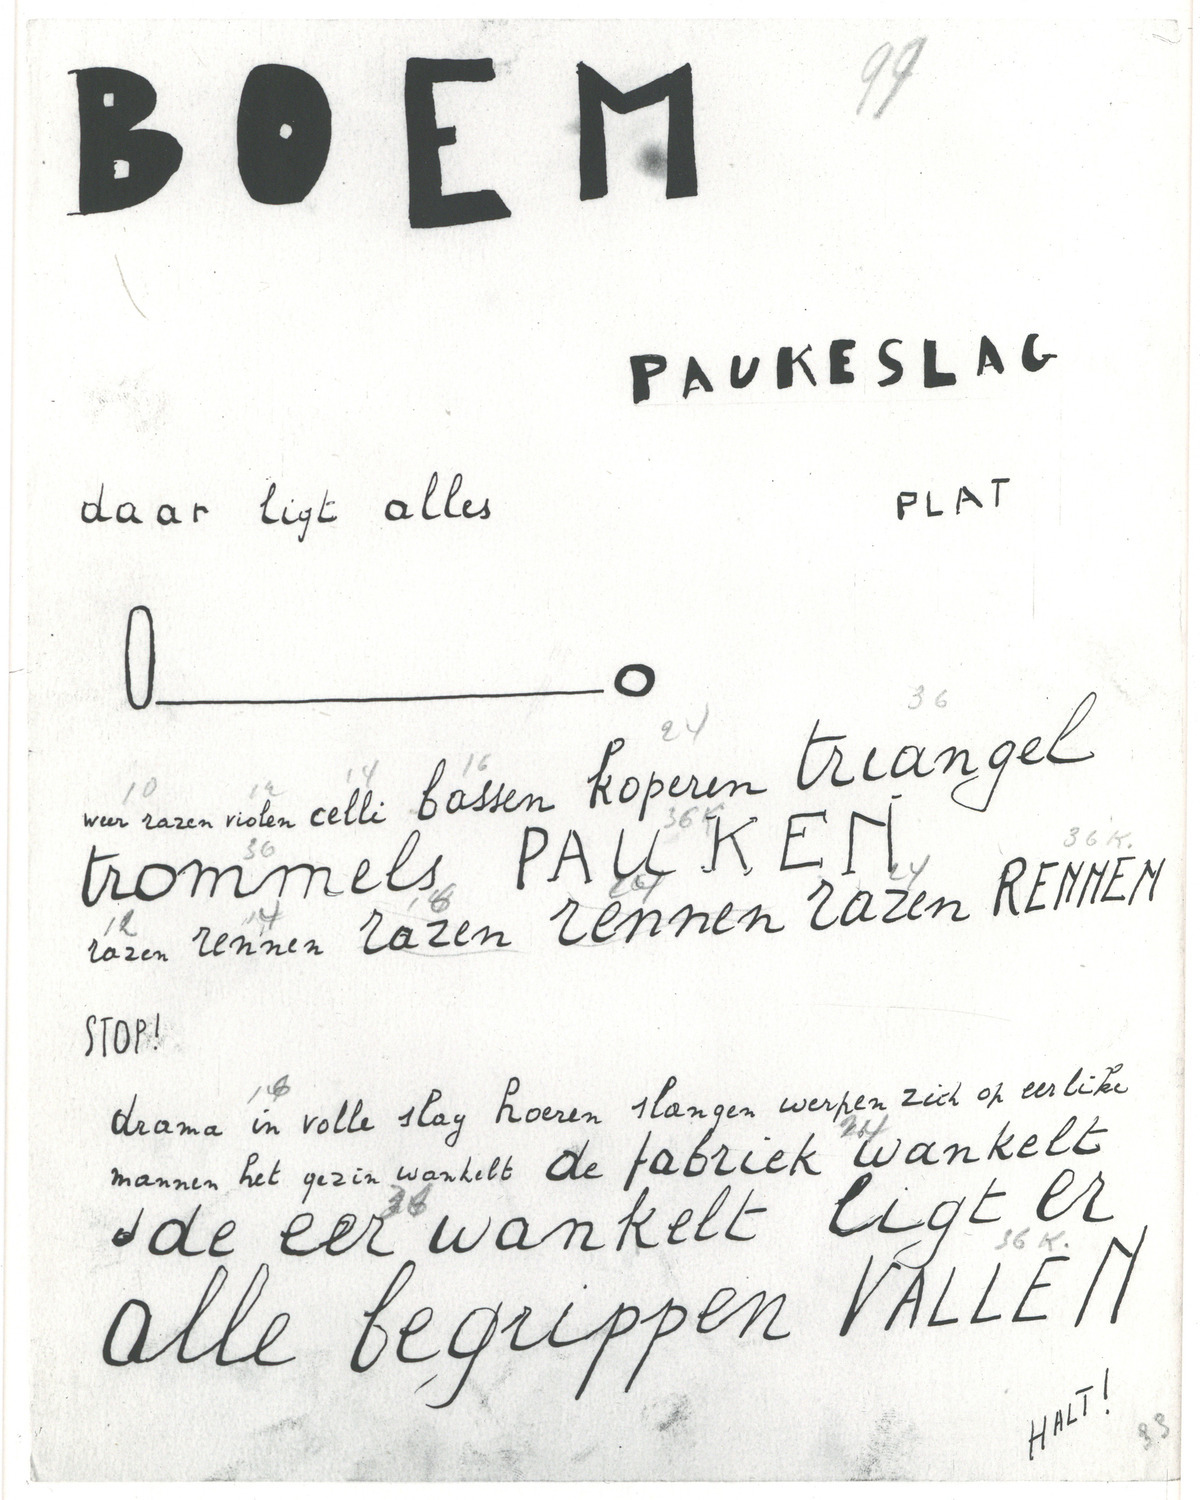 BOEM 99
PAUKESLAG
daar ligt alles PLAT
O o
24 36
10 12 14 16
weer razen violen celli bassen koperen triangel
30 36 K
trommels PAUKEN
12 14 18 24 36 K.
razen rennen razen rennen razen RENNEN
STOP!
drama in volle slag hoeren slangen werpen zich op eerlike
mannen het gezin wankelt de fabriek wankelt
de eer wankelt ligt er
36 K.
alle begrippen VALLEN
HALT!
33